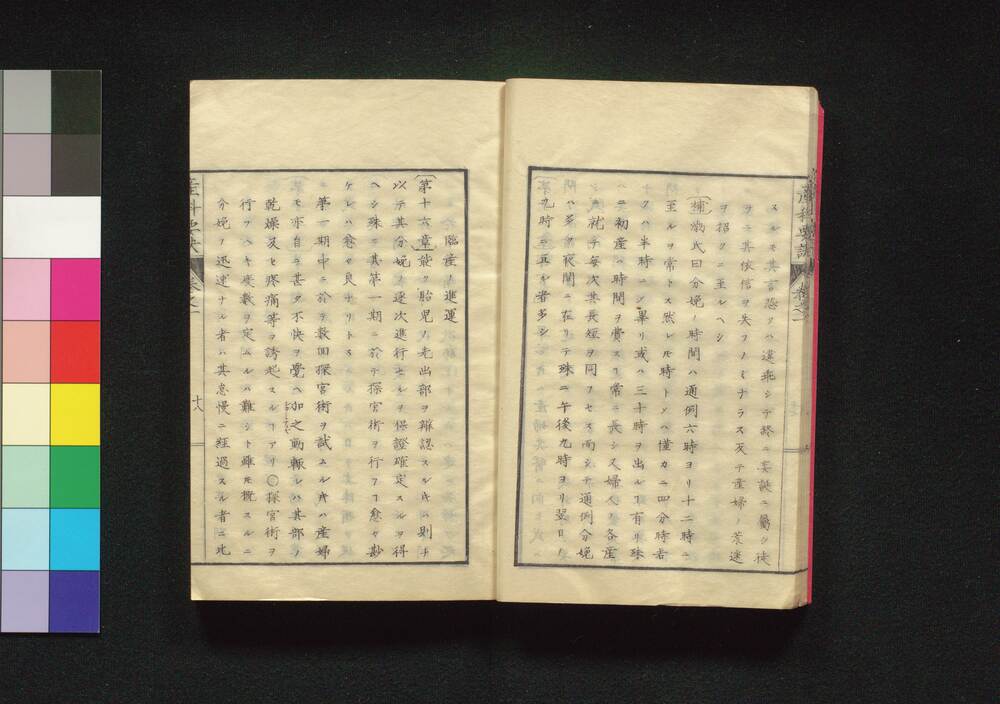 スルモ其言恐クハ違乖シテ終ニ妄誕ニ屬シ徒
ラニ其依信ヲ失フノミナラス反テ産婦ノ荒迷
ヲ招クニ至ルヘシ
補 氏曰分娩ノ時間ハ通例六時ヨリ十二時ニ
至ルヲ常トス然レ𪜈時トメハ僅カニ四分時若
クハ半時ニシ畢リ或ハ三十時ヲ出ルヿ有リ殊
ハニ初産ハ時間ヲ費スヿ常ニ長シ又婦人ノ各産
ニ就テ毎次其長短ヲ同フセス而シテ通例分娩
ハ多ク夜間ニ在リテ殊ニ午後九時ヨリ翌日ノ
九時ニ至ル者多シ
臨産ノ進運
第十六章 能ク胎児ノ先出部ヲ辨認スルキハ則チ
以テ其分娩ノ逐次進行セルヲ保證確定スルヲ得
ヘシ殊ニ其第一期ニ於テ探宮術ヲ行フヿ愈々尠
ケレハ愈々良ナリトス
第一期中ニ於テ數回探宮術ヲ試ムルキハ産婦
モ亦自ラ甚タ不快ヲ覺ヘ加之動輒レハ其部ノ
乾燥及ヒ疼痛等ヲ誘起スルヿアリ○探宮術ヲ
行フヘキ度數ヲ定ムルハ難シト雖𪜈概スルニ
分娩ノ迅速ナル者ハ其怠慢ニ經過スル者ニ比
十八